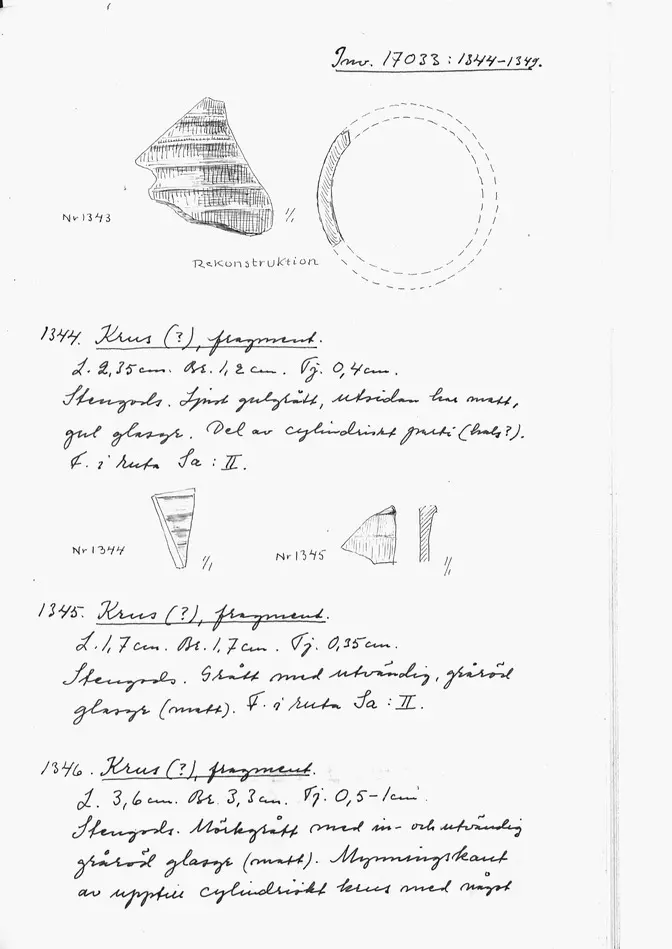 Inv. 17033:1344-1349.
Nr 1343
1/1
Rekonstruktion
1344. Krus (?), fragment.
L. 2,35cm. Br. 1,2cm. Tj. 0,4cm.
Stengods. Ljust gulgrått, utsidan har matt,
gul glasyr. Del av cylindriskt parti (hals?).
F. i ruta Sa:II.
Nr 1344
1/1
Nr 1345
1/1
1345. Krus (?), fragment.
L. 1,7cm. Br. 1,7cm. Tj. 0,35cm.
Stengods. Grått med utvändig, gråröd
glasyr (matt). F. i ruta Sa:II.
1346. Krus (?), fragment.
L. 3,6cm. Br. 3,3cm. Tj. 0,5-1cm.
Stengods. Mörkgrått med in- och utvändig
gråröd glasyr (matt). Mynningskant
av upptill cylindriskt krus med något